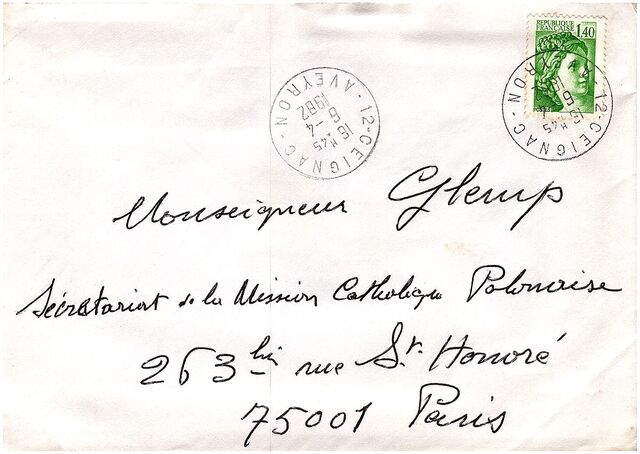 REPUBLIQUE
FRANÇAISE 1,40
12-CEIGNAC-AVEYRON
16 H45
6-4
1982
12-CEIGNAC-AVEYRON
16 H45
6
Monseigneur Glemp
Sécrétariat de la Mission Catholique Polonaise
263 bis rue St. Honoré
75001 Paris